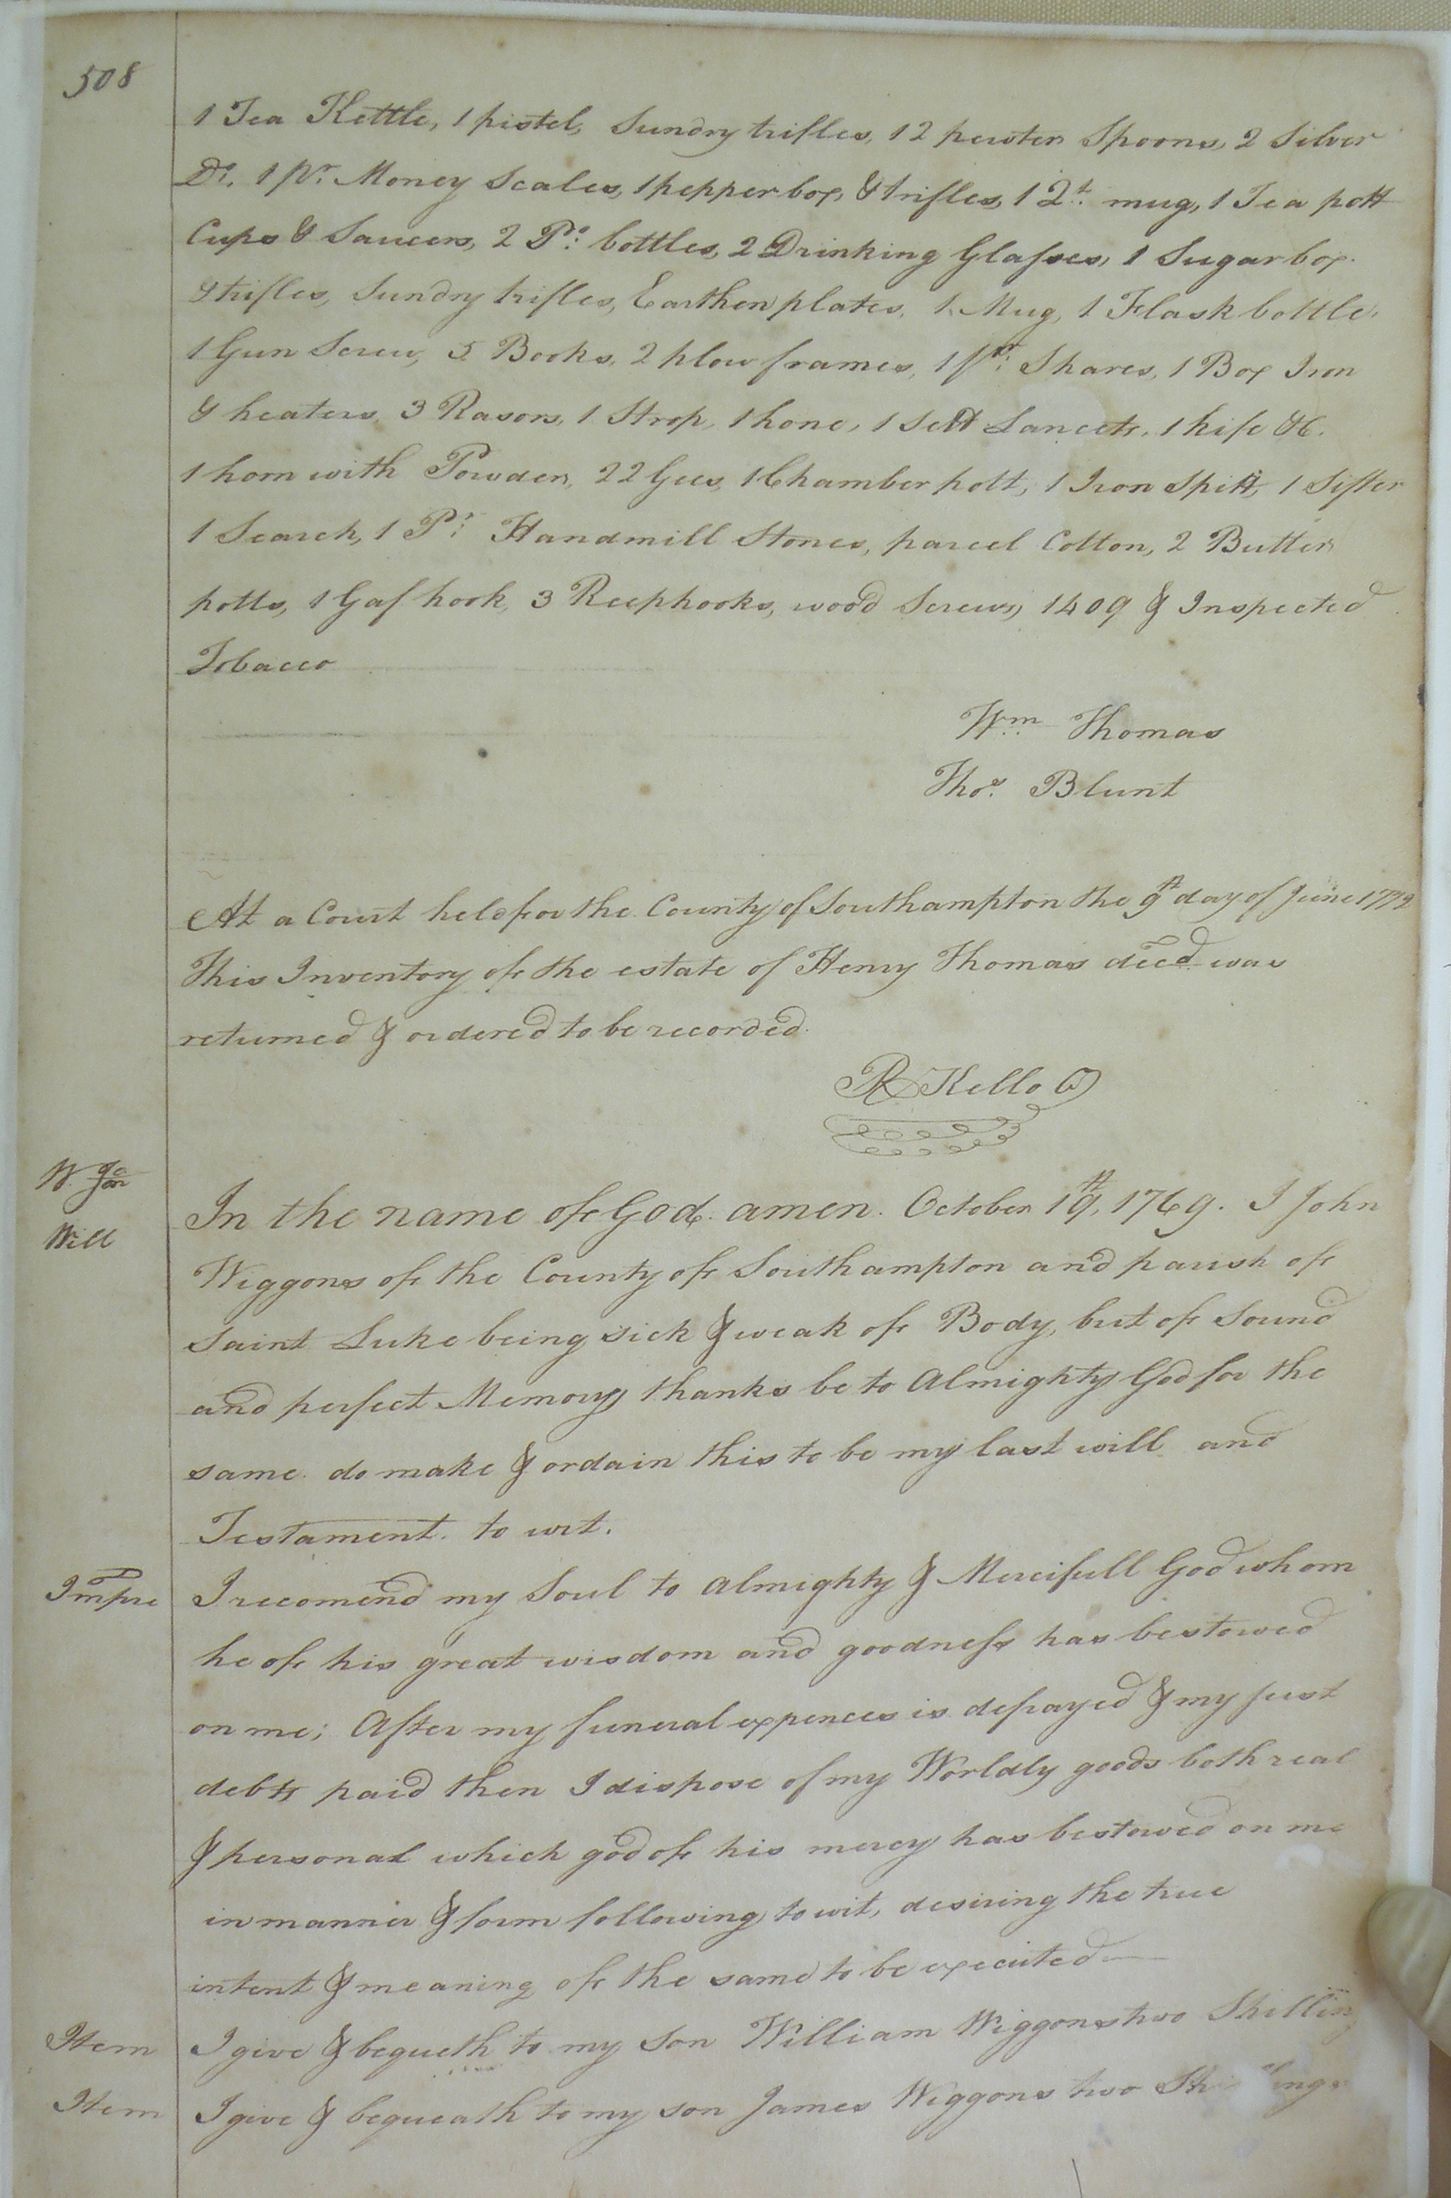 508
1 Tea Kettle, 1 pistel, Sundry trifles, 12 pewter Spoons, 2 Silver
Do. 1 pr. Money Scales, 1 pepper box, & trifles, 1 2t. mug, 1 Tea pott
Cups & Saucers, 2 Po: bottles, 2 Drinking Glasses, 1 Sugar box.
& trifles, Sundry trifles, Earthen plates, 1 Mug, 1 Flask bottle,
1 Gun Screw, 5 Books, 2 plow frames, 1 pr: Shares, 1 Box Iron
& heaters, 3 Rasors, 1 Strop, 1 hone, 1 Sett Lancets, 1 &C.
1 horn with Powder, 22 Gees, 1 Chamber pott, 1 Iron Spitt, 1 Sifter
1 Search, 1 Pr: Handmill Stones, parcel Cotton, 2 Butter
potts, 1 Gaf hook, 3 Reephooks, wood Screws, 1409 & Inspected
Tobacco
Wm. Thomas
Thos. Blunt
At a Court held for the County of Southampton the 9th day of June 1772
This Inventory of the estate of Henry Thomas decd was
returned & ordered to be recorded.
R Kello
W.
Will
In the name of God. amen. October 19th, 1769. I John
Wiggons of the County of Southampton and parish of
Saint Luke being sick & weak of Body, but of Sound
and perfect Memory, thanks be to Almighty God for the
same. do make & ordain this to be my last will and
Testament. to wit.
Impre I recomend my Soul to almighty & Mercifull God whom
he of his great wisdom and goodness has bestowed
on me; After my funeral expences is defrayed & my just
debts paid then I dispose of my Worldly goods both real
& personal which god of his mercy has bestowed on me
in manner & form following, to wit, desiring the true
intent & meaning of the same to be executed
Item I give & begueth to my Son William Wiggons two Shilling
Item I give & bequeath to my son James Wiggons two